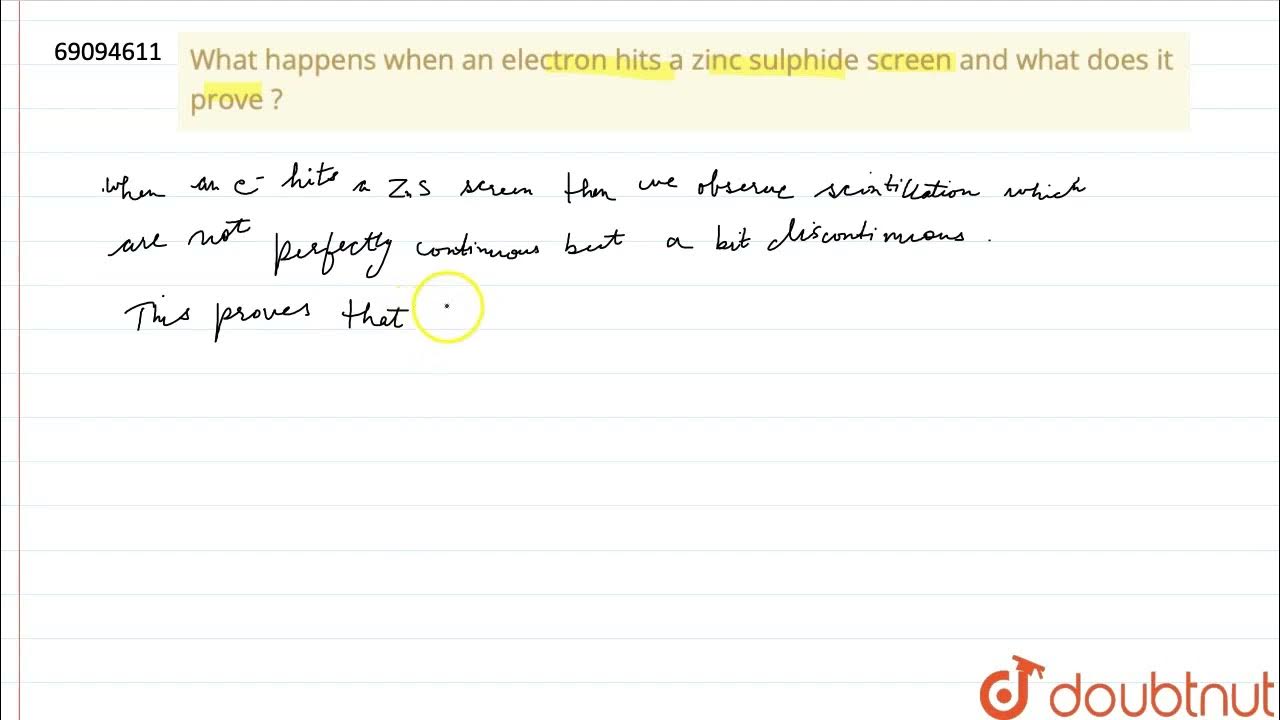 69094611
What happens when an electron hits a zinc sulphide screen and what does it
prove ?
when an e⁻ hits a ZnS screen then we observe scintillation which
are not perfectly continuous but a bit discontinuous.
This proves that
doubtnut